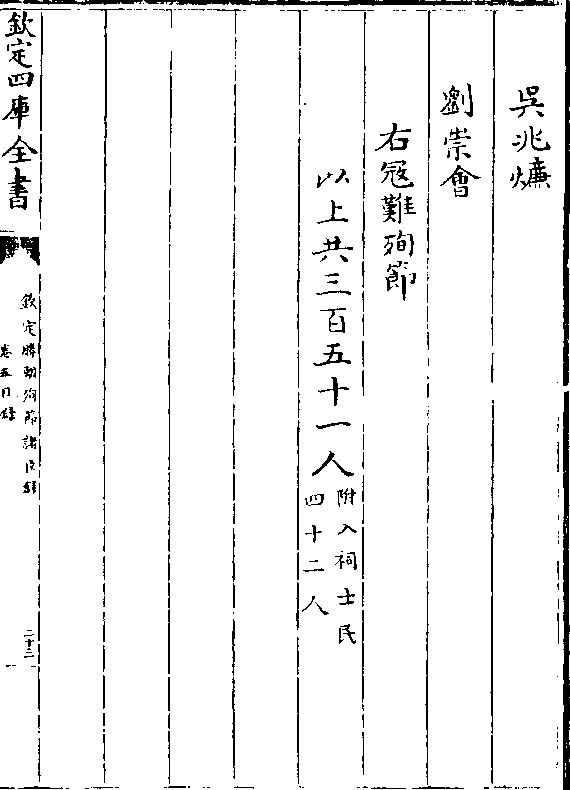 吳兆㷿
劉崇會
右冦難殉節
以上共三百五十一人附入祠士民四十二人
欽定四庫全書
欽定勝朝殉節諸臣錄
卷五目錄
二十三